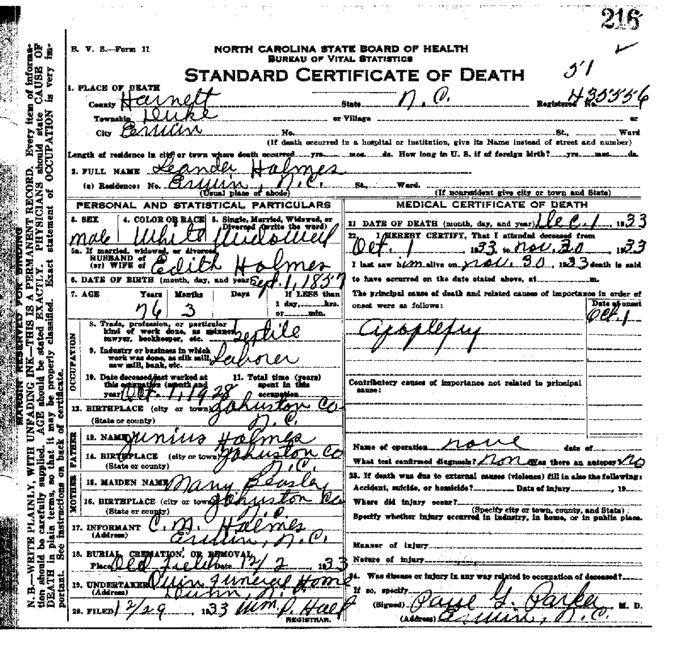 216
B. V. S.—Form 11
NORTH CAROLINA STATE BOARD OF HEALTH
BUREAU OF VITAL STATISTICS
STANDARD CERTIFICATE OF DEATH
51
1. PLACE OF DEATH
County Harnett State N. C. Registered No. 435556
Township Duke or Village or
City Erwin No. St., Ward
(If death occurred in a hospital or institution, give its Name instead of street and number)
Length of residence in city or town where death occurred yrs. mos. ds. How long in U. S. if of foreign birth? yrs. mos. ds.
2. FULL NAME Leander Holmes
(a) Residence: No. Erwin, N.C. St., Ward.
(Usual place of abode) (If nonresident give city or town and State)
PERSONAL AND STATISTICAL PARTICULARS
3. SEX 4. COLOR OR RACE 5. Single, Married, Widowed, or Divorced (write the word)
male White Widowed
5a. If married, widowed, or divorced
HUSBAND of
(or) WIFE of Edith Holmes
6. DATE OF BIRTH (month, day, and year) Sept. 1, 1857
7. AGE Years Months Days If LESS than
1 day, hrs.
76 3 or min.
OCCUPATION
8. Trade, profession, or particular
kind of work done, as spinner,
sawyer, bookkeeper, etc. Textile
9. Industry or business in which
work was done, as silk mill,
saw mill, bank, etc. Laborer
10. Date deceased last worked at 11. Total time (years)
this occupation (month and spent in this
year) Oct. 1, 1928 occupation
12. BIRTHPLACE (city or town) Johnston Co
(State or county) N. C.
FATHER
13. NAME Junius Holmes
14. BIRTHPLACE (city or town) Johnston Co
(State or county) N.C.
MOTHER
15. MAIDEN NAME Mary Beasley
16. BIRTHPLACE (city or town) Johnston Co
(State or county) N.C.
17. INFORMANT C. M. Holmes
(Address) Erwin, N.C.
18. BURIAL, CREMATION, OR REMOVAL
Place Old Field Date 12/2 1933
19. UNDERTAKER Funeral Home
(Address) Dunn, N.C.
20. FILED 12/29 1933 Wm. P. Hall
REGISTRAR.
MEDICAL CERTIFICATE OF DEATH
21 DATE OF DEATH (month, day, and year) Dec. 1, 1933
22. I HEREBY CERTIFY, That I attended deceased from
Oct. 1 1933 to Nov. 30 1933
I last saw him alive on Nov. 30, 1933 death is said
to have occurred on the date stated above, at m.
The principal cause of death and related causes of importance in order of
onset were as follows: Date of onset
Oct. 1
Apoplexy
Contributory causes of importance not related to principal
cause:
Name of operation none date of
What test confirmed diagnosis? non Was there an autopsy? no
23. If death was due to external causes (violence) fill in also the following:
Accident, suicide, or homicide? Date of injury , 19
Where did injury occur?
(Specify city or town, county, and State)
Specify whether injury occurred in industry, in home, or in public place.
Manner of injury
Nature of injury
24. Was disease or injury in any way related to occupation of deceased?
If so, specify
(Signed) G. Parker, M. D.
(Address) Erwin, N.C.
MARGIN RESERVED FOR BINDING
N. B.—WRITE PLAINLY, WITH UNFADING INK—THIS IS A PERMANENT RECORD. Every item of information should be carefully supplied. AGE should be stated EXACTLY. PHYSICIANS should state CAUSE OF DEATH in plain terms, so that it may be properly classified. Exact statement of OCCUPATION is very important. See instructions on back of certificate.